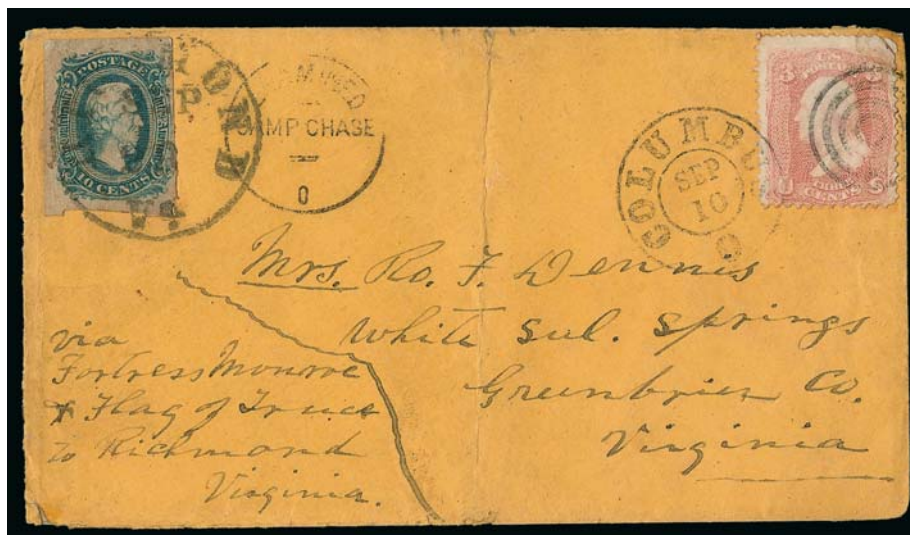 POSTAGE
10 CENTS
VA
CAMP CHASE
O
COLUMBUS
SEP
10
O
3
3
CENTS
Mrs. Ro. F. Dennis
White Sul. Springs
Greenbrier Co.
Virginia
via
Fortress Monroe
& Flag of Truce
to Richmond
Virginia.